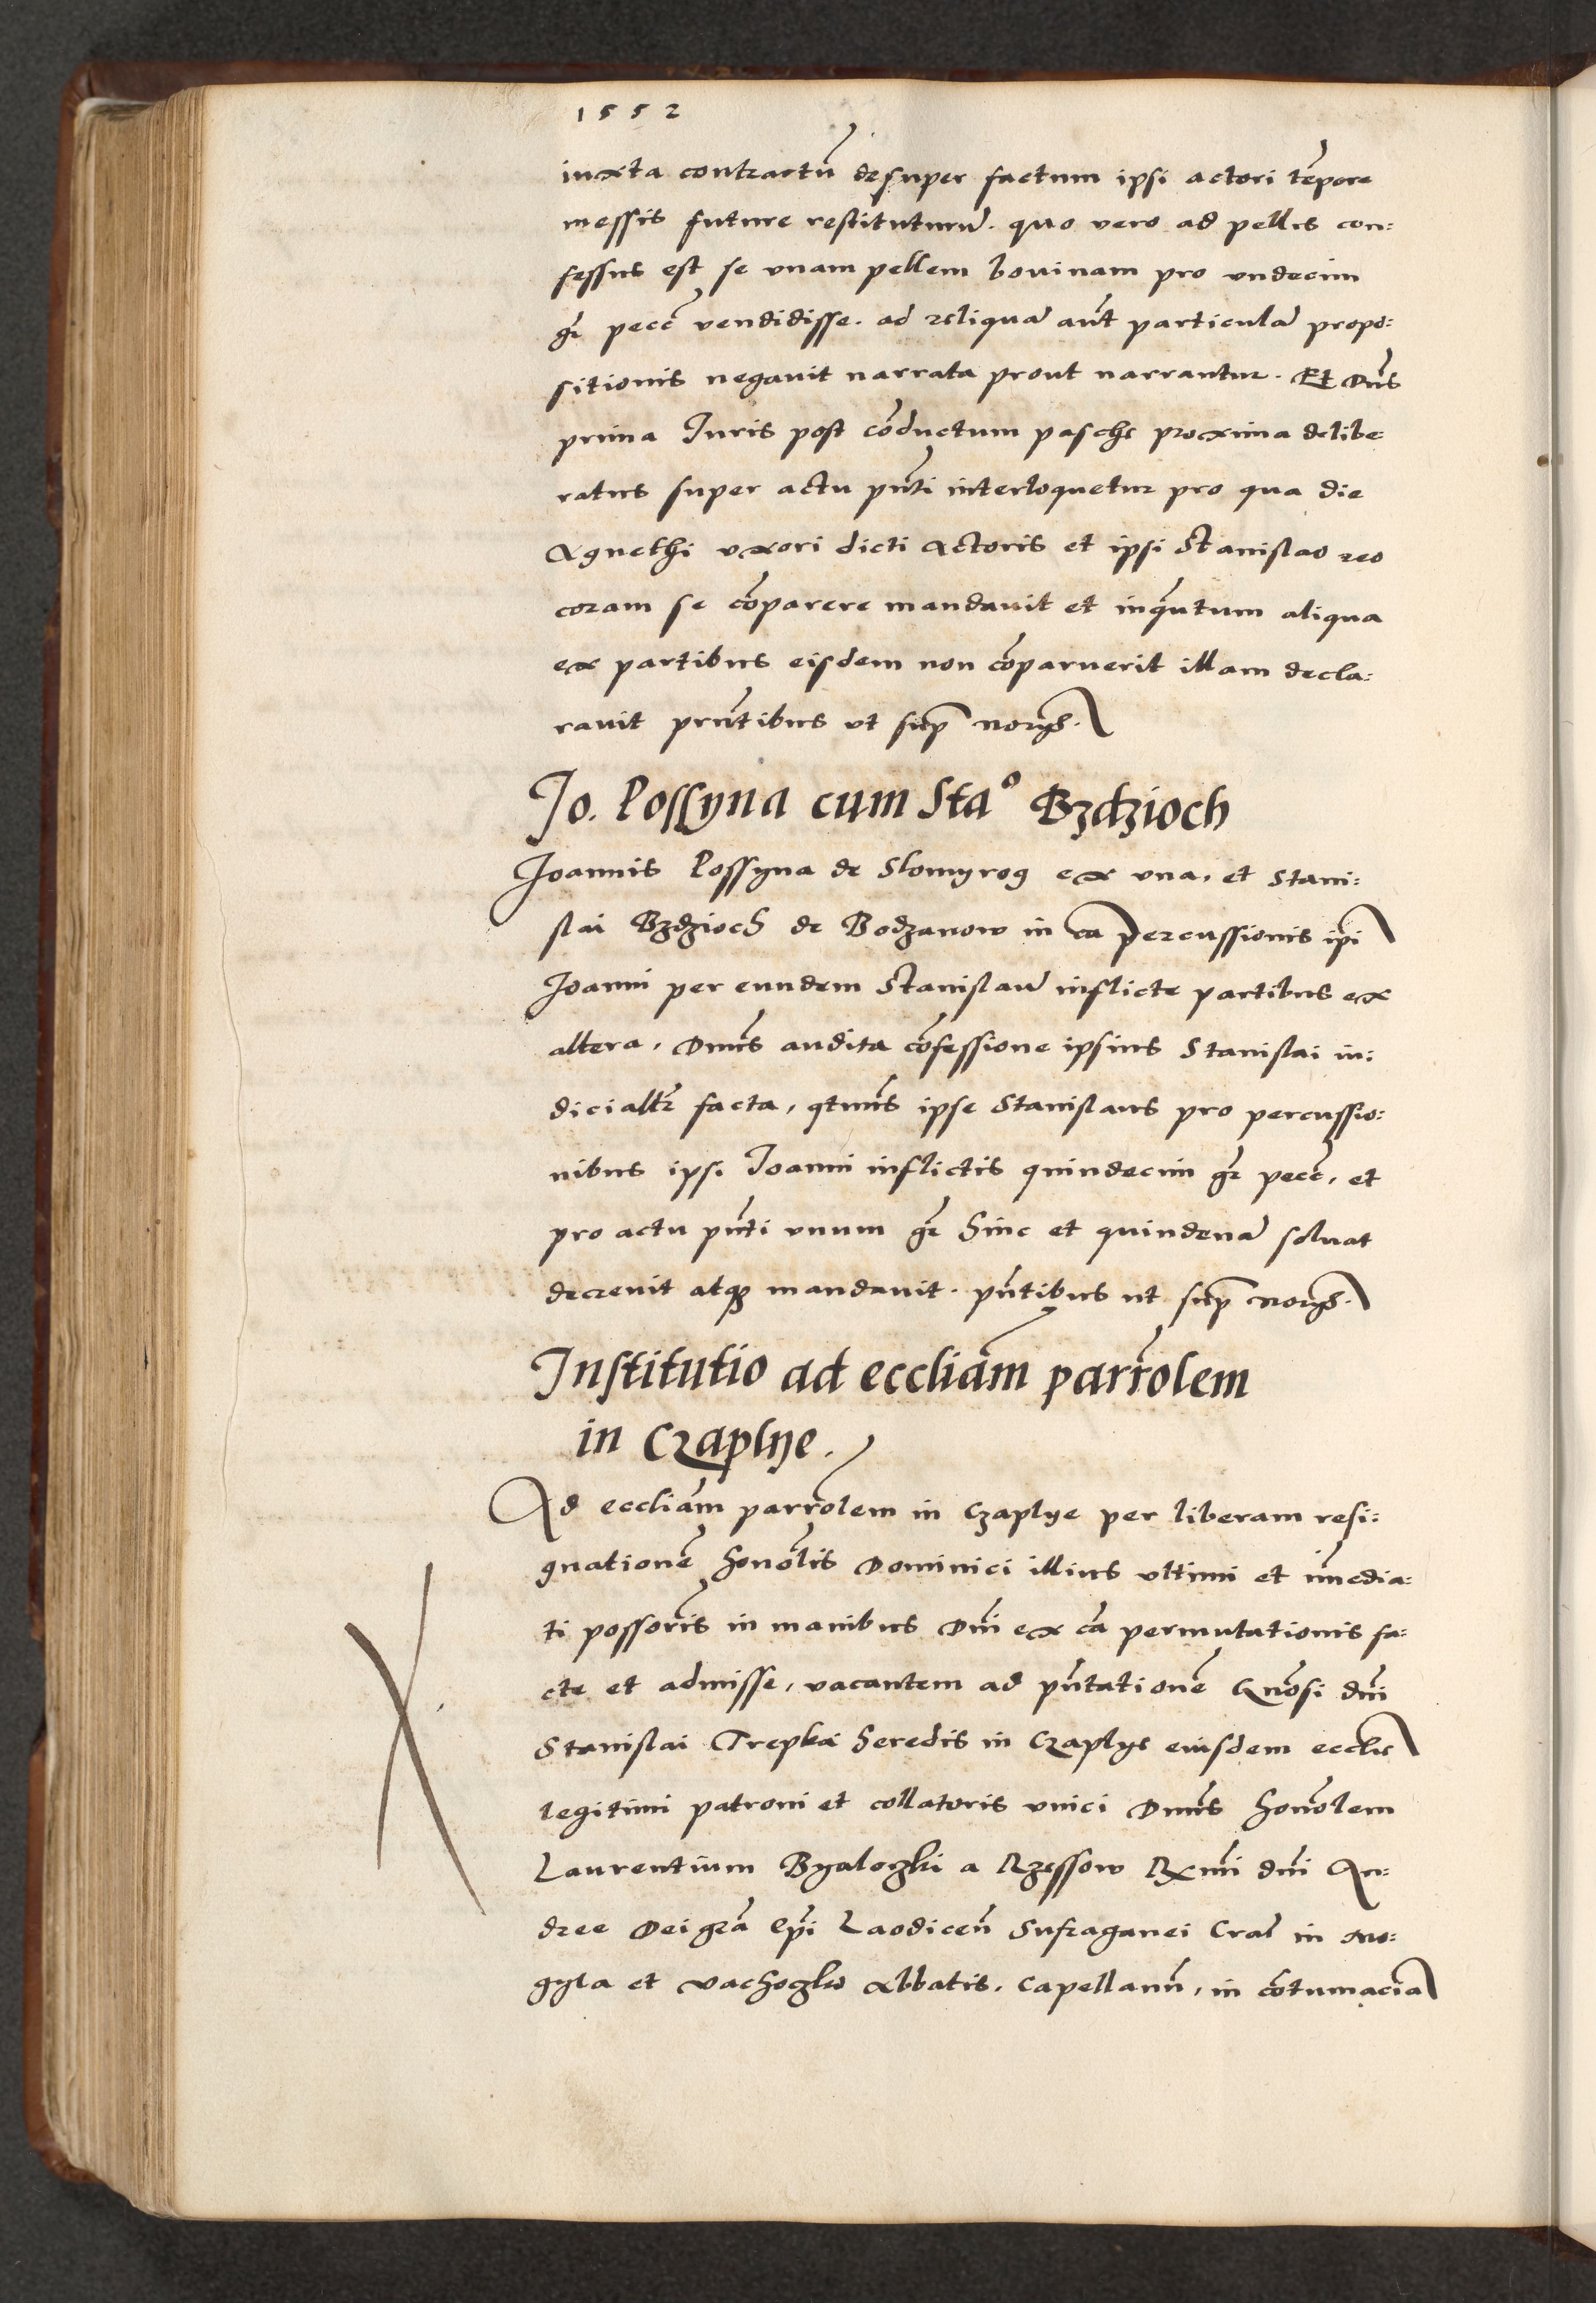 1552
iuxta contractũ desuper factum ipsi actori tẽpore
messis future restituturũ. quo vero ad pelles con:
fessus est se vnam pellem bouinam pro vndecim
gr̃ pecc̃ vendidisse. ad reliquã aũt particulã propo:
sitionis negauit narrata prout narrantur. Et Dñs
prima Iuris post cõductum pasche proxima delibe:
raturs super actu pñti interloquetur pro qua die
Agnethi vxori dicti Actoris et ipsi Stanislao reo
coram se cõparere mandauit et inq̃ntum aliqua
ex partibus eisdem non cõparuerit illam decla:
rauit prñtibus vt sup̃
Jo. Possyna cum Staº Bzdzioch
Joannis Possyna de Slomyrog ex vna, et Stani:
slai Bzdzioch de Bodzanow in cã percussionis ip̃i
Joanni per eundem Stanislaũ inflicte partibus ex
altera, Dnus audita cõfessione ipsius Stanislai iu:
diciallr̃ facta, qtnus ipse Stanislaus pro percussio:
nibus ipsi Ioanni inflictis quindecim gr̃ pecc̃, et
pro actu pñti vnum gr̃ hinc et quindenã soluat
decreuit atq3 mandauit. pñtibus ut sup̃
Institutio ad eccliãm parrõlem
in Czaplye.
Ad eccliãm parrõlem in Czaplye per liberam resi:
gnationẽ honõlis Dominici illius vltimi et im̃edia:
ti possõris in manibus Dñi ex cã permutationis fa:
cte et admisse, vacantem ad pñtationẽ Gnõsi dñi
Stanislai Trepka heredis in Czaplye eiusdem ecclie
legitimi patroni et collatoris vnici Dnus honõlem
Laurentium Byaloczki a Rzessow Rxmi dñi An:
dree Dei grã Ep̃i Laodiceñ Sufraganei Crac̃ in Mo:
gyla et Vachoczko Abbatis, Capellanũ, in cõtumaciã